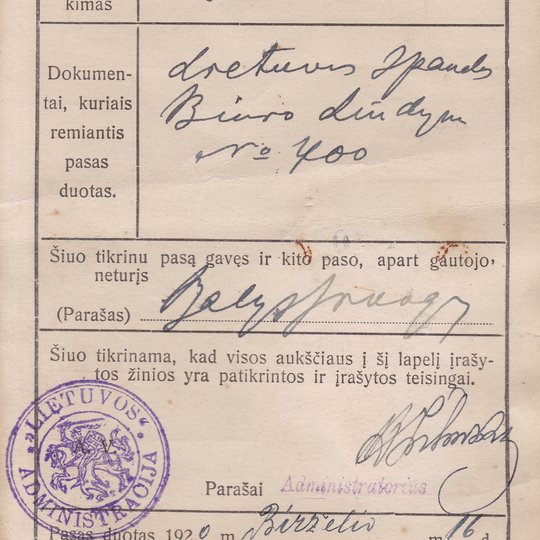 kimas
Dokumen-
tai, kuriais
remiantis
pasas
duotas.
Lietuvos Spaudos
Biuro liudym
No 400
Šiuo tikrinu pasą gavęs ir kito paso, apart gautojo,
neturįs
(Parašas)
Šiuo tikrinama, kad visos aukščiaus į šį lapelį įrašy-
tos žinios yra patikrintos ir įrašytos teisingai.
"LIETUVOS"
ADMINISTRACIJA
A. V.
Parašai Administratorius
Pasas duotas 1920 m Birželio m 16 d.